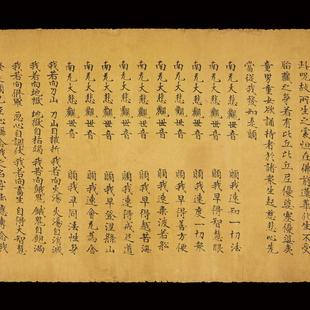 故所生之處恒在佛前蓮華化生不受
胎藏之身若有比丘比丘尼優婆塞優婆夷
童男童女欲誦持者於諸衆生起慈悲心先
當從我發如是願
南无大悲觀世音 願我速知一切法
南无大悲觀世音 願我早得智慧眼
南无大悲觀世音 願我速度一切衆
南无大悲觀世音 願我早得善方便
南无大悲觀世音 願我速乘波若船
南无大悲觀世音 願我早得越苦海
南无大悲觀世音 願我速得戒足道
南无大悲觀世音 願我早登涅槃山
南无大悲觀世音 願我速會无爲舍
南无大悲觀世音 願我早同法性身
我若向刀山 刀山自摧折 我若向火湯 火湯自消滅
我若向地獄 地獄自枯竭 我若向餓鬼 餓鬼自飽滿
我若向脩羅 惡心自調伏 我若向畜生 自得大智慧
發是願已至心稱念我之名字亦應專念我